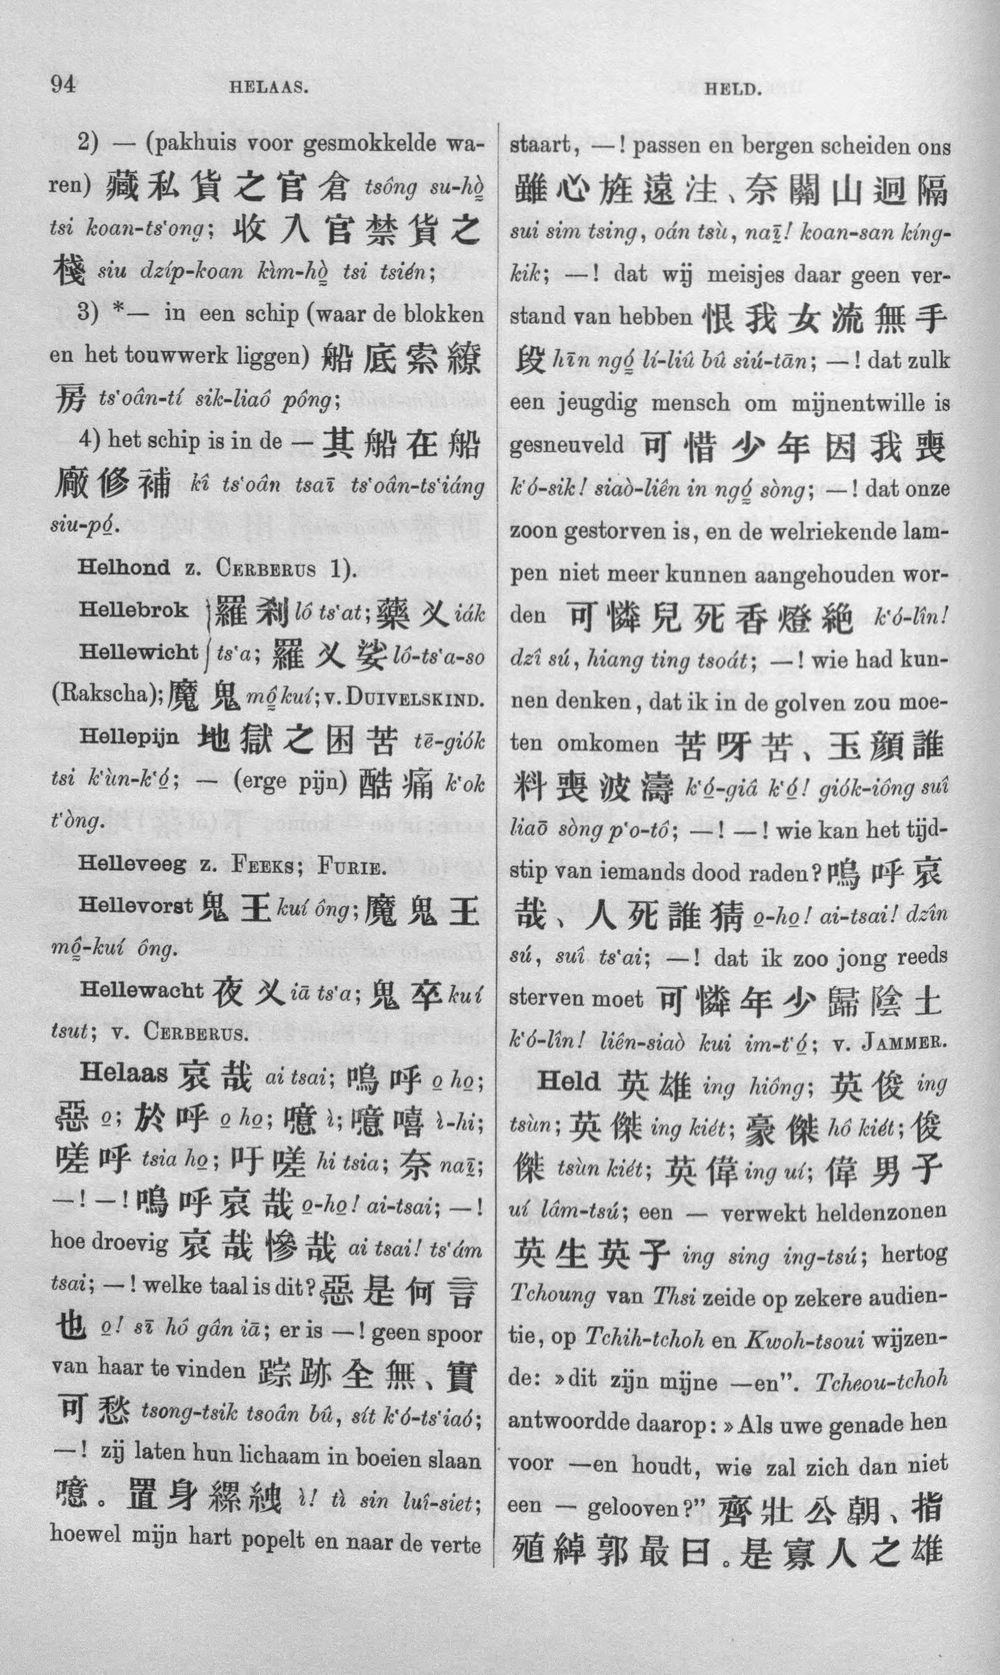 94
HELAAS.
HELD.
2) — (pakhuis voor gesmokkelde wa-
ren) 藏私貨之官倉 tsông su-hò̤
tsi koan-ts‘ong; 收入官禁貨之
棧 siu dzíp-koan kìm-hò̤ tsi tsién;
3) *— in een schip (waar de blokken
en het touwwerk liggen) 船底索繚
房 ts‘oân-tí sik-liaô pông;
4) het schip is in de — 其船在船
廠修補 kî ts‘oân tsaī ts‘oân-ts‘iáng
siu-pó̤.
Helhond z. CERBERUS 1).
Hellebrok } 羅剎 lô ts‘at; 藥义 iák
Hellewicht } ts‘a; 羅义娑 lô-ts‘a-so
(Rakscha); 魔鬼 mô̤ kuí; v. DUIVELSKIND.
Hellepijn 地獄之困苦 tē-giók
tsi k‘ùn-k‘ó̤; — (erge pijn) 酷痛 k‘ok
t‘òng.
Helleveeg z. FEEKS; FURIE.
Hellevorst 鬼王 kuí ông; 魔鬼王
mô̤-kuí ông.
Hellewacht 夜义 iā ts‘a; 鬼卒 kuí
tsut; v. CERBERUS.
Helaas 哀哉 ai tsai; 嗚呼 o̤ ho̤;
惡 o̤; 於呼 o̤ ho̤; 噫 ì; 噫嘻 ì-hi;
嗟呼 tsia ho̤; 吁嗟 hi tsia; 奈 naī̤;
—! —! 嗚呼哀哉 o̤-ho̤! ai-tsai; —!
hoe droevig 哀哉慘哉 ai tsai! ts‘ám
tsai; —! welke taal is dit? 惡是何言
也 o̤! sī hô gân iā; er is —! geen spoor
van haar te vinden 踪跡全無、實
可愁 tsong-tsik tsoân bû, sít k‘ó-ts‘iaó;
—! zij laten hun lichaam in boeien slaan
噫。置身縲絏 ì! tì sin luî-siet;
hoewel mijn hart popelt en naar de verte
staart, —! passen en bergen scheiden ons
雖心旌遠注、奈關山迥隔
sui sim tsing, oán tsù, naī̤! koan-san kíng-
kik; —! dat wij meisjes daar geen ver-
stand van hebben 恨我女流無手
段 hīn ngó̤ lí-liû bû siú-tān; —! dat zulk
een jeugdig mensch om mijnentwille is
gesneuveld 可惜少年因我喪
k‘ó-sik! siaò-liên in ngó̤ sòng; —! dat onze
zoon gestorven is, en de welriekende lam-
pen niet meer kunnen aangehouden wor-
den 可憐兒死香燈絶 k‘ó-lîn!
dzî sú, hiang ting tsoát; —! wie had kun-
nen denken, dat ik in de golven zou moe-
ten omkomen 苦呀苦、玉顔誰
料喪波濤 k‘ó̤-giâ k‘ó̤! giók-iông suî
liaō sòng p‘o-tô; —! —! wie kan het tijd-
stip van iemands dood raden? 嗚呼哀
哉、人死誰猜 o̤-ho̤! ai-tsai! dzîn
sú, suî ts‘ai; —! dat ik zoo jong reeds
sterven moet 可憐年少歸陰土
k‘ó-lîn! liên-siaò kui im-t‘ó̤; v. JAMMER.
Held 英雄 ing hiông; 英俊 ing
tsùn; 英傑 ing kiét; 豪傑 hô kiét; 俊
傑 tsùn kiét; 英偉 ing uí; 偉男子
uí lâm-tsú; een — verwekt heldenzonen
英生英子 ing sing ing-tsú; hertog
Tchoung van Thsi zeide op zekere audien-
tie, op Tchih-tchoh en Kwoh-tsoui wijzen-
de: »dit zijn mijne —en”. Tcheou-tchoh
antwoordde daarop: »Als uwe genade hen
voor —en houdt, wie zal zich dan niet
een — gelooven?” 齊壯公朝、指
殖綽郭最曰。是寡人之雄